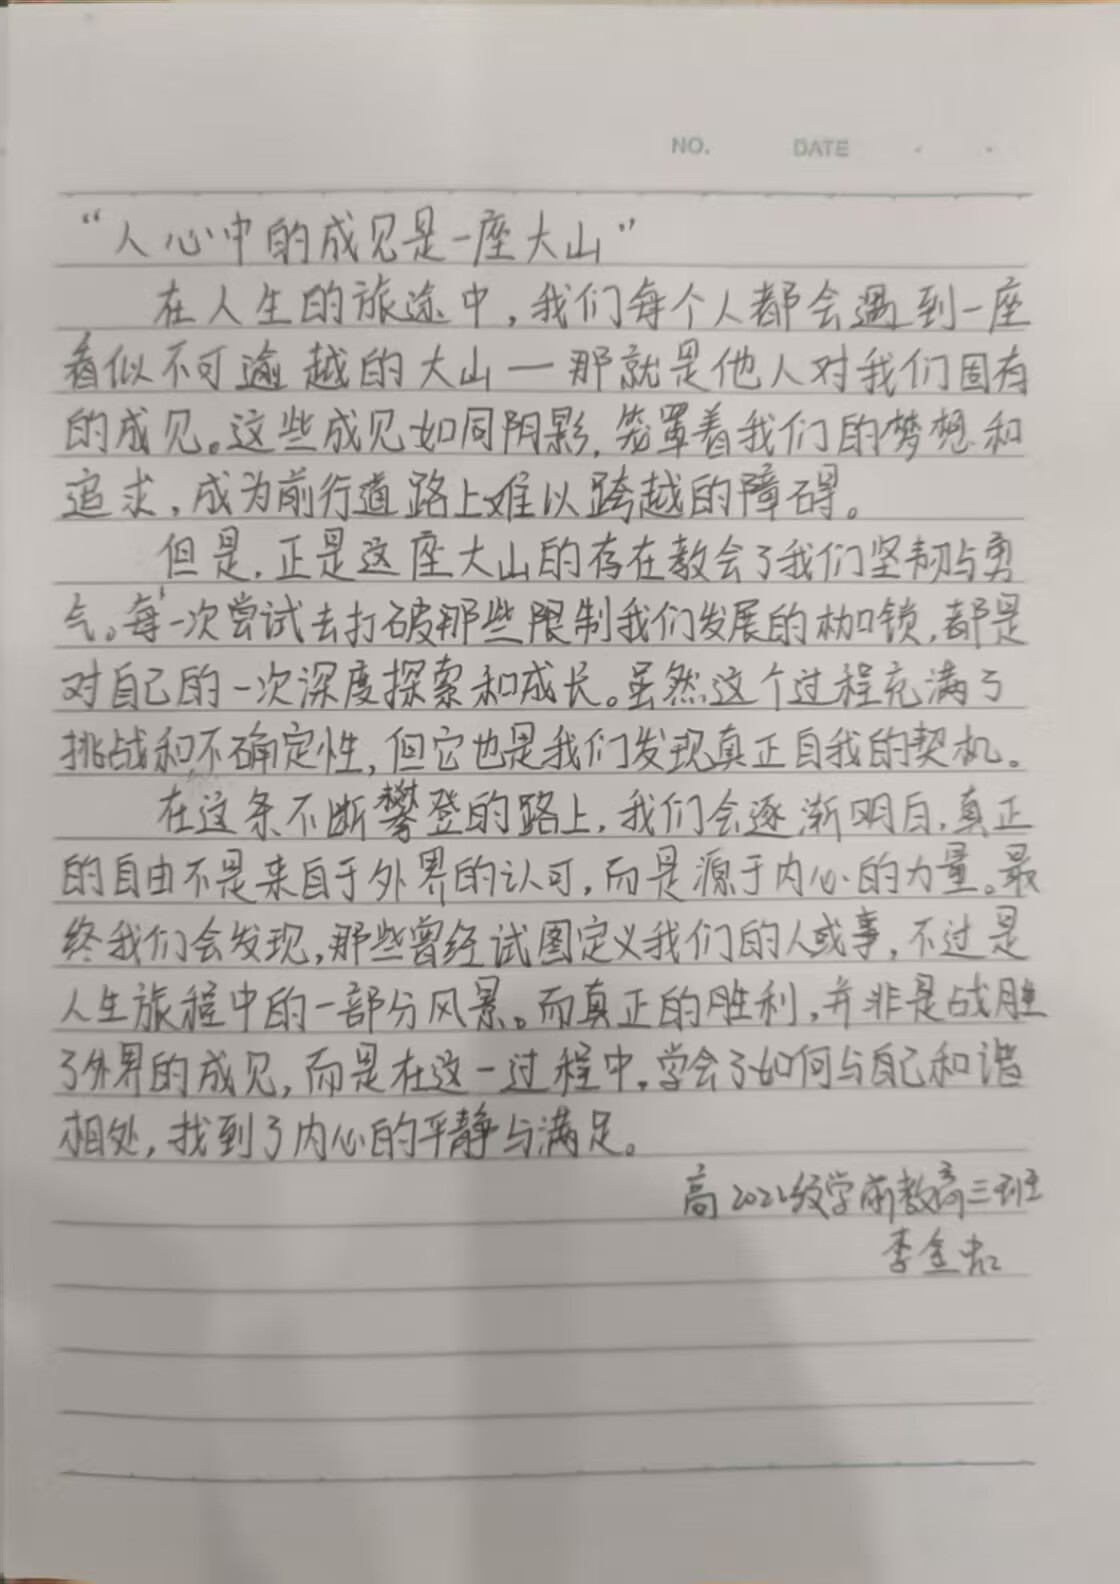 NO. DATE
“人心中的成见是一座大山”
在人生的旅途中,我们每个人都会遇到一座
看似不可逾越的大山—那就是他人对我们固有
的成见。这些成见如同阴影,笼罩着我们的梦想和
追求,成为前行道路上难以跨越的障碍。
但是,正是这座大山的存在教会了我们坚韧与勇
气。每一次尝试去打破那些限制我们发展的枷锁,都是
对自己的一次深度探索和成长。虽然这个过程充满了
挑战和不确定性,但它也是我们发现真正自我的契机。
在这条不断攀登的路上,我们会逐渐明白,真正
的自由不是来自于外界的认可,而是源于内心的力量。最
终我们会发现,那些曾经试图定义我们的人或事,不过是
人生旅程中的一部分风景。而真正的胜利,并非是战胜
了外界的成见,而是在这一过程中,学会了如何与自己和谐
相处,找到了内心的平静与满足。
高 级学前教育三班
李金虹